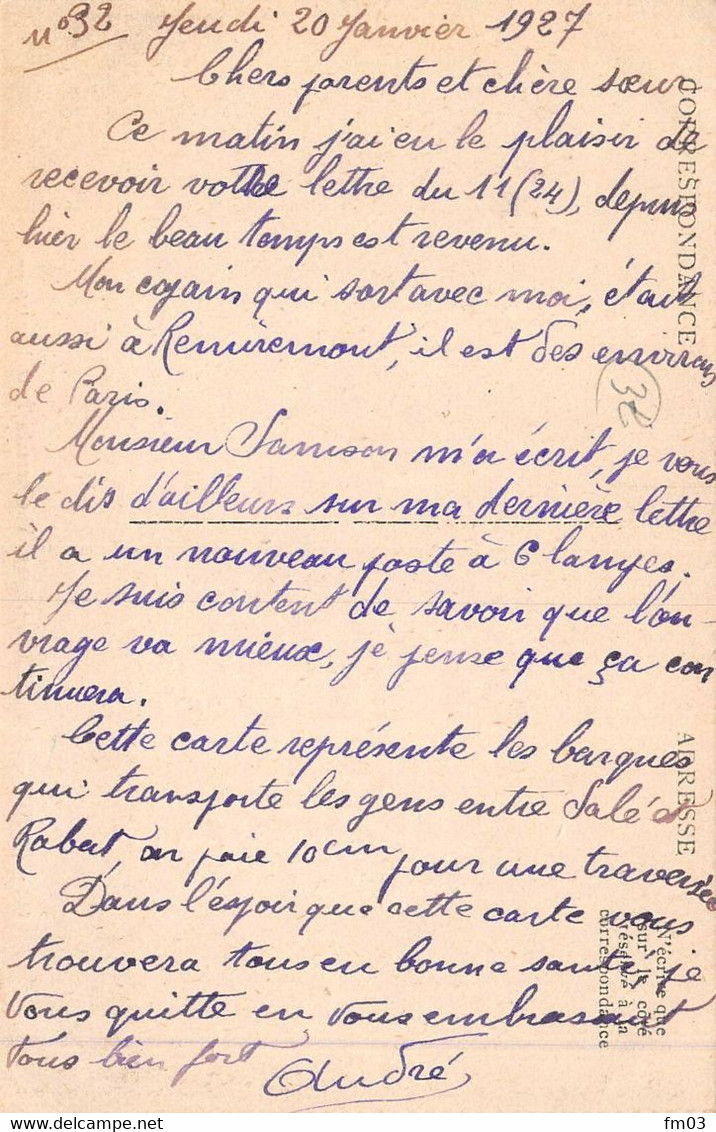 N° 32 Jeudi 20 Janvier 1927
Chers parents et chère sœur
Ce matin j'ai eu le plaisir de
recevoir votre lettre du 11 (24), depuis
hier le beau temps est revenu.
Mon copain qui sort avec moi, était
aussi à Remiremont, il est des environs
de Paris.
32
Monsieur Samson m'a écrit, je vous
le dis d'ailleurs sur ma dernière lettre
il a un nouveau poste à 6 lampes.
Je suis content de savoir que l'ou-
vrage va mieux, je pense que ça con
tinuera.
Cette carte représente les barques
qui transporte les gens entre Salé et
Rabat, on paie 10cm pour une traversée
Dans l'espoir que cette carte vous
trouvera tous en bonne santé, je
vous quitte en vous embrassant
tous bien fort
André
CORRESPONDANCE
ADRESSE
N'écrire que
sur le côté
réservé à la
correspondance
fm03